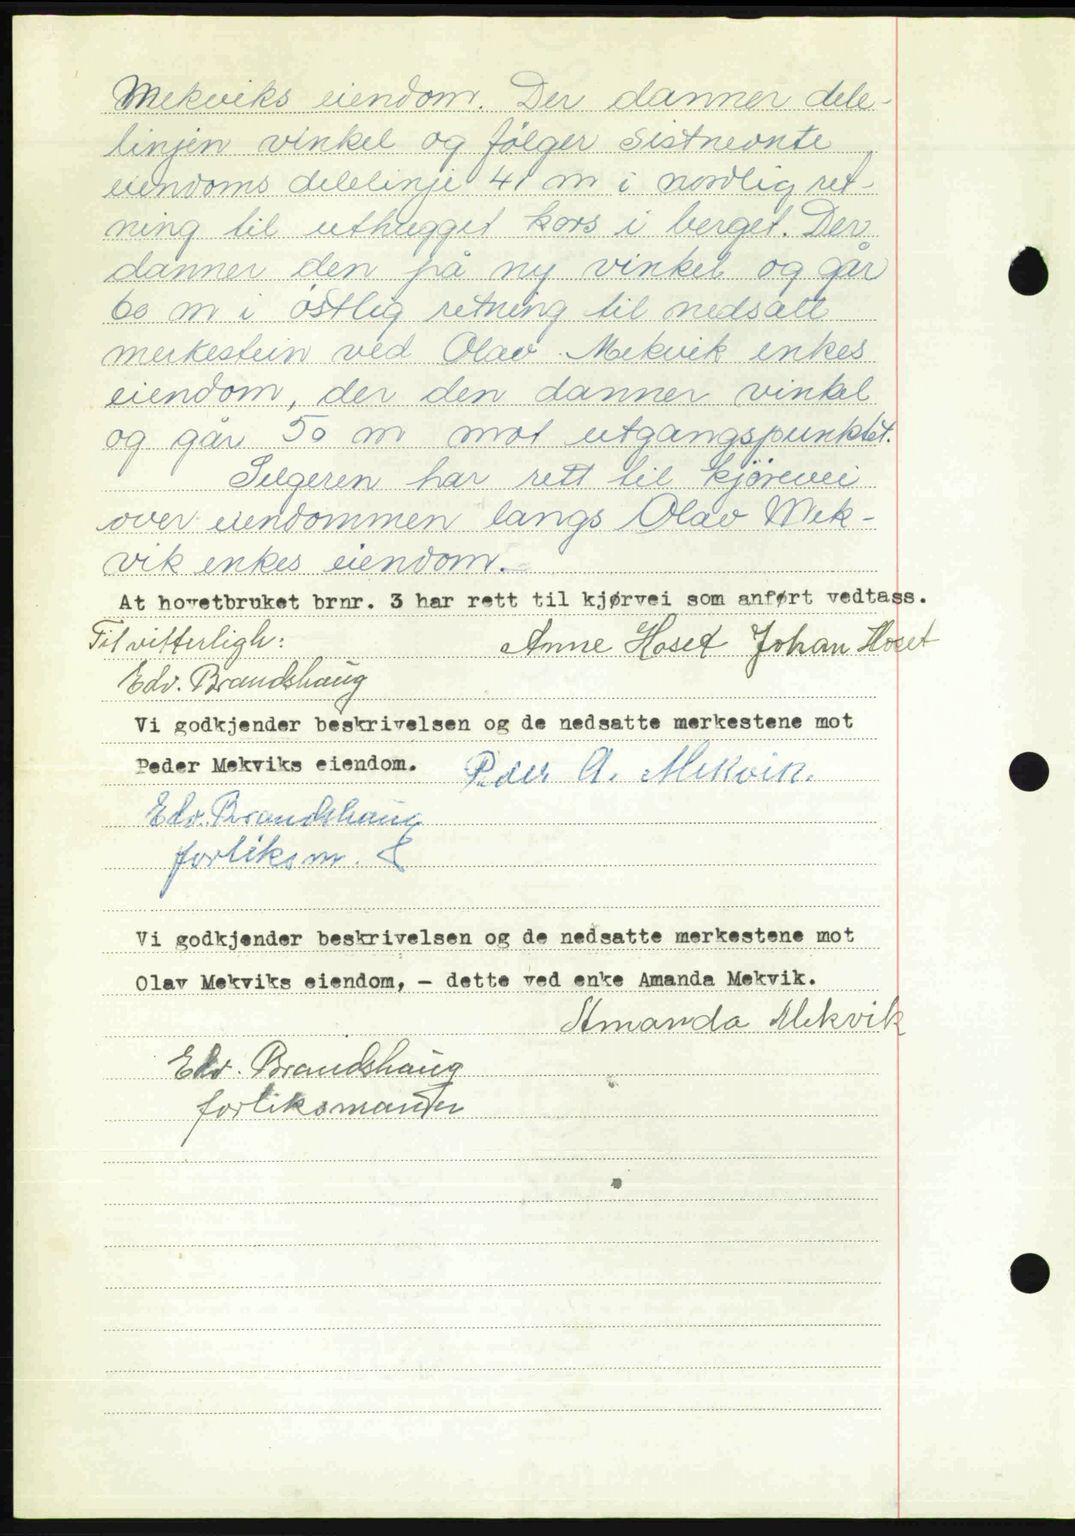 Mekviks eiendom. Der danner dele-
linjen vinkel og følger sistnevnte
eiendoms delelinje 41 m i nordlig ret-
ning til uthugget kors i berget. Der
danner den på ny vinkel og går
60 m i östlig retning til nedsatt
merkestein ved Olav Mekvik enkes
eiendom, der den danner vinkel
og går 50 m mot utgangspunktet.
Selgeren har rett til kjörevei
over eiendommen langs Olav Mek-
vik enkes eiendom.
At hovetbruket brnr. 3 har rett til kjørvei som anført vedtass.
Til vitterligh: Anne Hoset Johan Hoset
Edv. Brandshaug
Vi godkjender beskrivelsen og de nedsatte merkestene mot
Peder Mekviks eiendom. Peder A. Mekvik.
Edv. Brandshaug
forliksm.
Vi godkjender beskrivelsen og de nedsatte merkestene mot
Olav Mekviks eiendom, - dette ved enke Amanda Mekvik.
Amanda Mekvik
Edv. Brandshaug
forliksmann